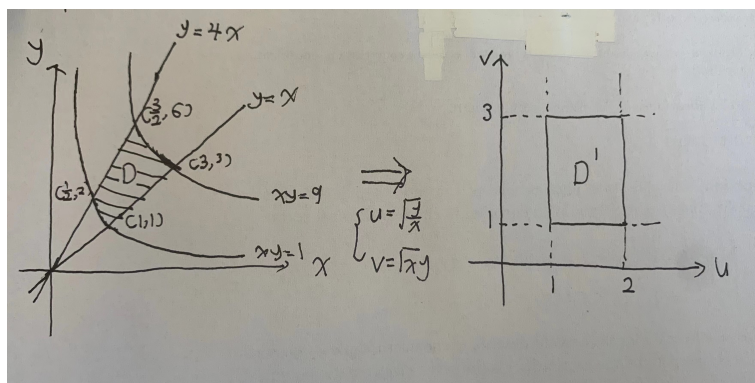 y=4x
y
y=x
(3/2,6)
(3,3)
D
(1/2,2)
(1,1)
xy=9
xy=1
x
⇒
{ u=√(y/x)
v=√xy
v
3
D'
1
1
2
u